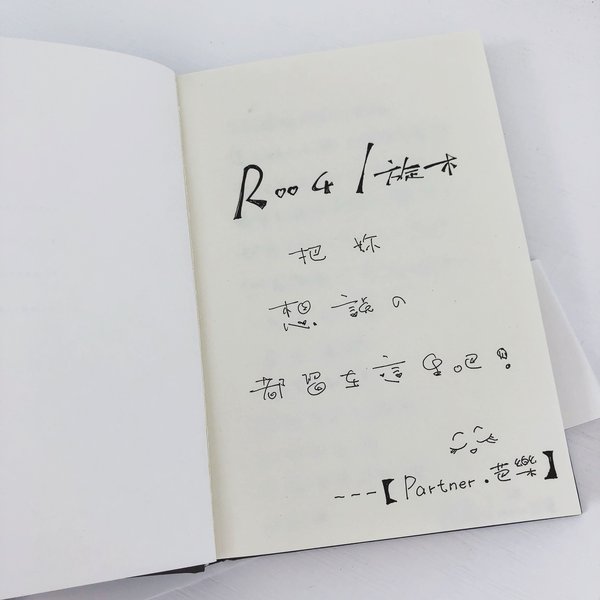 Roo4/旋木
把妳
想說の
都留在這里吧!
---【Partner.芭樂】